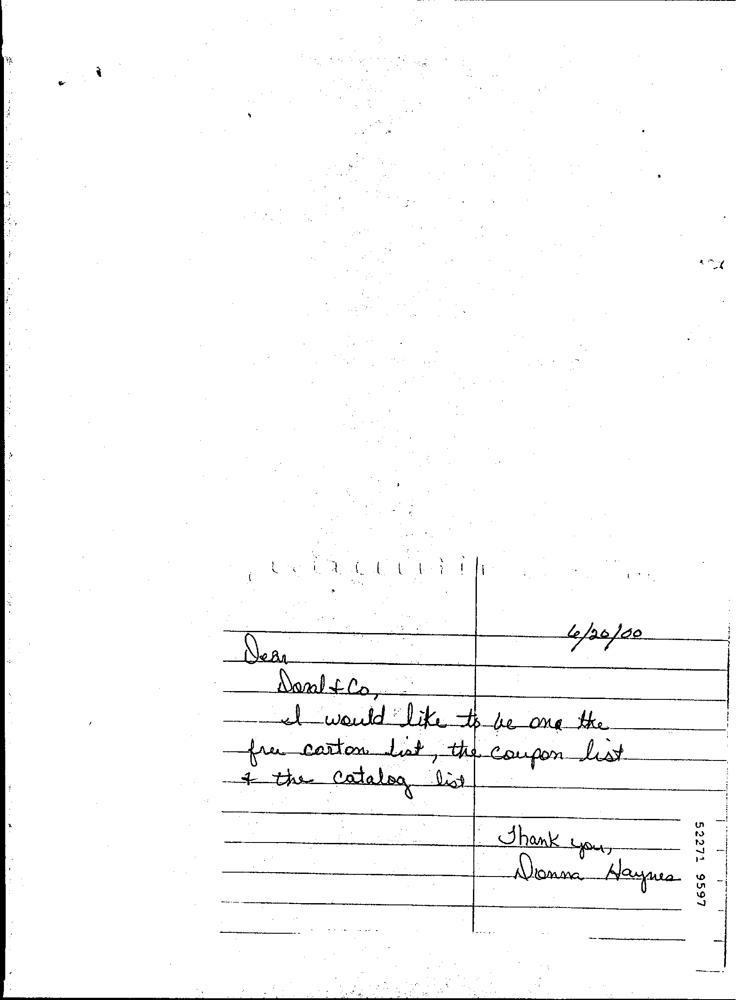 6/20/00
Dear
Doral & Co,
I would like to be one the
free carton list, the coupon list
& the catalog list
Thank you,
Donna Haynes
52271 9597